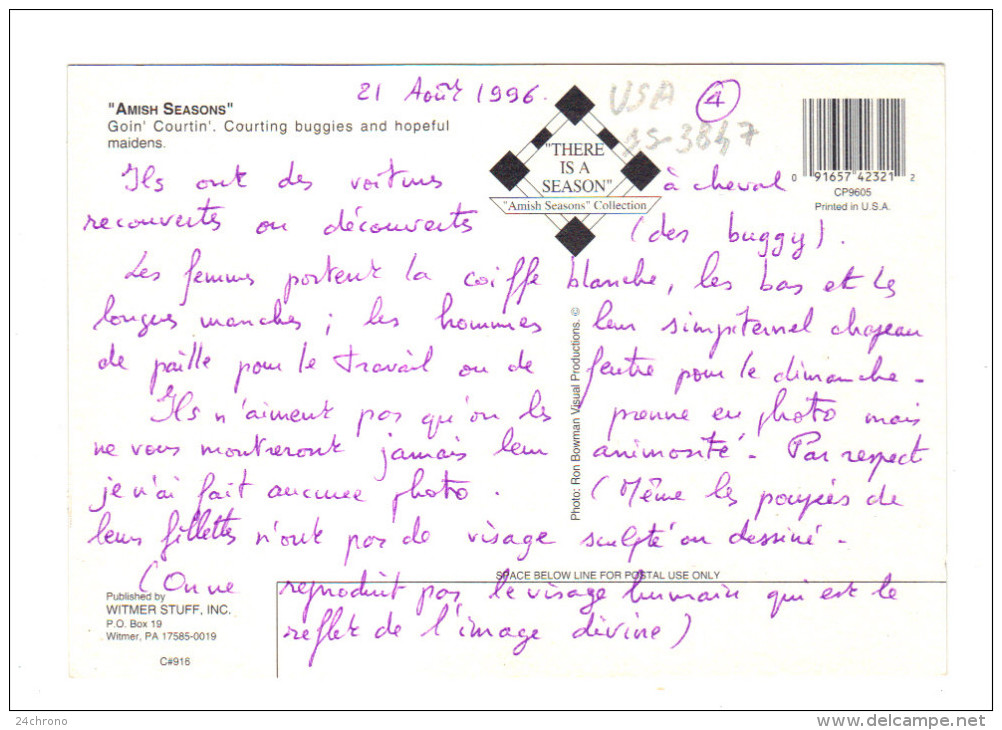 21 Août 1996.
USA
4
15-3847
"AMISH SEASONS"
Goin' Courtin'. Courting buggies and hopeful
maidens.
"THERE
IS A
SEASON"
"Amish Seasons" Collection
0 91657 42321 2
CP9605
Printed in U.S.A.
Ils ont des voitures à cheval
recouvertes ou découvertes (des buggy).
Les femmes portent la coiffe blanche, les bas et les
longues manches ; les hommes leur simpiternel chapeau
de paille pour le travail ou de feutre pour le dimanche.
Ils n'aiment pas qu'on les prenne en photo mais
ne vous montreront jamais leur animosité. Par respect
je n'ai fait aucune photo. (Même les poupées de
leurs fillettes n'ont pas de visage sculpté ou dessiné.
(On ne reproduit pas le visage humain qui est le
reflet de l'image divine)
Photo: Ron Bowman Visual Productions. ©
SPACE BELOW LINE FOR POSTAL USE ONLY
Published by
WITMER STUFF, INC.
P.O. Box 19
Witmer, PA 17585-0019
C#916
24chrono
delcampe.net